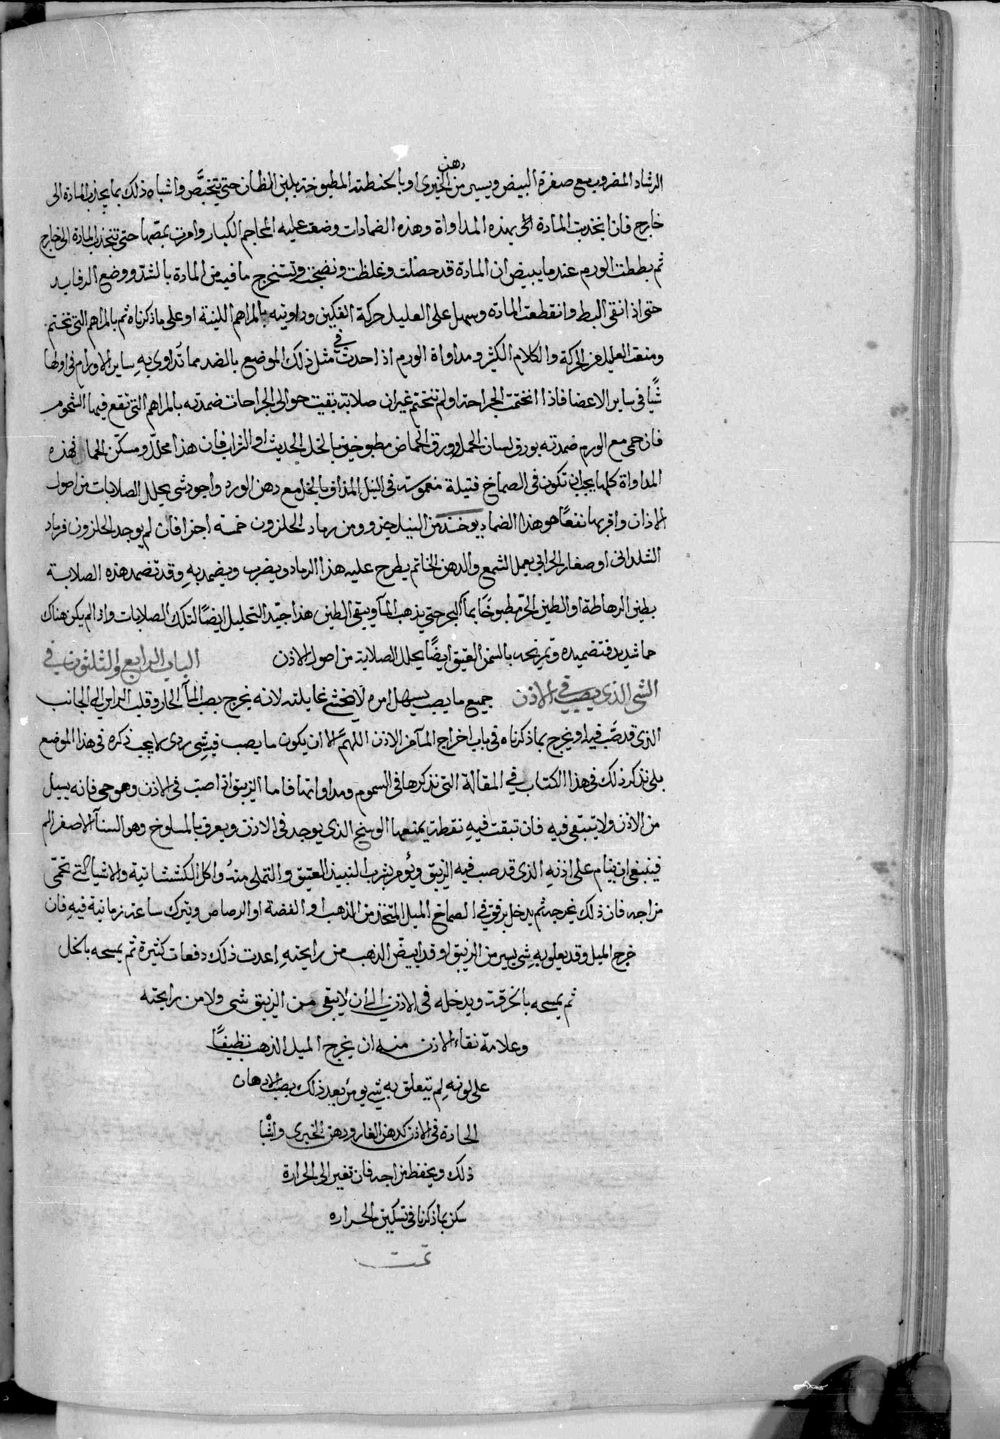 الرشاد المضروب مع صفرة البيض ويسير من دهن الخيري او بالحنطة المطبوخة بلبن الظان حتى تتخبص واشباه ذلك بما يجذب المادة الى
خارج فاذا انجذبت المادة الى بهذه المداواة وهذه الضمادات وضعت عليه المحاجم الكبار وامرت بمصها حتى تنجذب المادة الى خارج
ثم بططت الورم عندما يبيض ان المادة قد حصلت وغلظت ونضجت وتستخرج ما فيه من المادة بالشد ووضع الرفايد
حتى اذا نقى البط وانقطعت المادة وسهل على العليل حركة الفكين وداويته بالمراهم اللينة او على ما ذكرناه ثم بالمراهم التي تختم
ومنعت العليل من الحركة والكلام الكثير ومداواة الورم اذا حدث في مثل ذلك الموضع بالضد مما تداوي به ساير الاورام في اولها
شيا في ساير الاعضا فاذا انختمت الجراحة او لم تنختم غير ان صلابة بقيت حوالى الجراحات ضمدته بالمراهم التي تقع فيها الشحوم
فان حمى مع الورم ضمدته بورق لسان الحمل او ورق الحماض مطبوخين بالخل الحديث او الزاب فان هذا محلل ومسكن للحما فهذه
المداواة كلها يجب ان تكون في الصماخ فتيلة مغموسة في النيل المذاف بالخل مع دهن الورد واجود شي يحلل الصلابات من اصول
الاذان واقربها نفعا هو هذا الضماد يوخذ من النيل جزو ومن رماد الحلزون خمسة اجزا فان لم يوجد الحلزون فرماد
او صغار الحرابي يعمل الشمع والدهن الخاتم يطرح عليه هذا الرماد ويضرب ويضمد به وقد تضمد هذه الصلابة
بطين او الطين الحر مطبوخا بما حتى يذهب المآ ويبقى الطين هذا جيد التحليل ايضا لتلك الصلابات واذا لم يكن هناك
حما شديد فتضميده وتمريخه بالسمن العتيق ايضا يحلل الصلابة من اصول الاذن الباب الرابع والثلثون في
الشي الذي يصب في الاذن جميع ما يصب يسهل امره لا يخشى غايلته لانه يخرج بصب المآ الحار وقلب الراس الى الجانب
الذي قد صب فيه او يخرج بما ذكرناه في باب اخراج المآ من الاذن اللهم الا ان يكون ما يصب فيه شي ردى لا يجب ذكره في هذا الموضع
بلى نذكر ذلك في هذا الكتاب في المقالة التي نذكرها في السموم ومداواتها فاما الزيبق اذا صب في الاذن وهو حي فانه يسيل
من الاذن ولا يبقى فيه فان تبقت فيه نقطة يمنعها الوسخ الذي يوجد في الاذن ويعرف بالمسلوخ وهو السنا الاصفر المر
فينبغي ان ينام على اذنه الذي قد صب فيه الزيبق ويؤمر بشرب النبيذ العتيق والتملي منه واكل والاشيا التي تحمى
مزاجه فان ذلك يخرجه ثم يدخل برفق في الصماخ الميل المتخذ من الذهب او الفضة او الرصاص ويترك ساعة زمانية فيه فان
خرج الميل وقد يعلو به شي يسير من الزيبق او قد ابيض الذهب من رايحته اعدت ذلك دفعات كثيرة ثم يمسحه بالخل
ثم يمسحه بالخرقة ويدخله في الاذن الى ان لا يبقى من الزيبق شي ولا من رايحته
وعلامة نقاء الاذن منه ان يخرج الميل الذهب نظيفا
على لونه لم يتعلق به شي يومر بعد ذلك بصب الادهان
الحادة في الاذن كدهن الغار ودهن الخيري واشبا
ذلك ويحفظ مزاجه فان تغير الى الحرارة
سكن بما ذكرنا في تسكين الحرارة
تمت